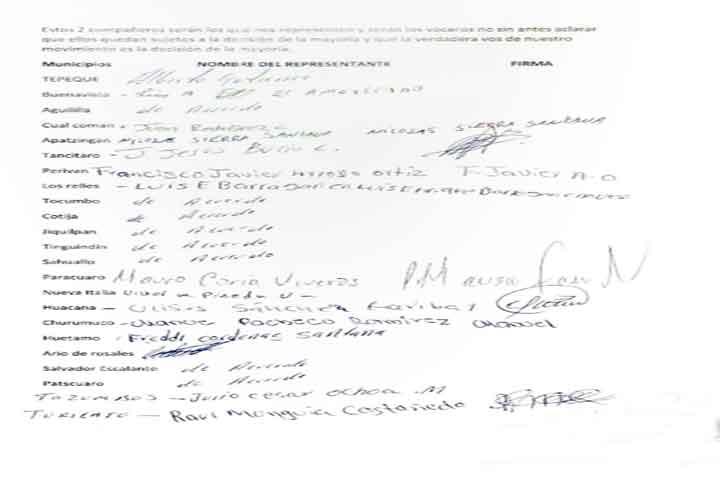 Estos 2 compañeros serán los que nos representen y serán los voceros no sin antes aclarar
que ellos quedan sujetos a la decisión de la mayoría y que la verdadera vos de nuestro
movimiento es la decisión de la mayoría.
Municipios NOMBRE DEL REPRESENTANTE FIRMA
TEPEQUE Alberto
Buenavista - Luis A El Americano
Aguililla de Acuerdo
Cualcoman - Juan
Apatzingan NICOLAS SIERRA SANTANA NICOLAS SIERRA SANTANA
Tancitaro - J Jesus Bucio C.
Periван Francisco Javier ortiz F. Javier A. O
Los relles - LUIS E Barragan
Tocumbo de Acuerdo
Cotija de Acuerdo
Jiquilpan de Acuerdo
Tinguindin de Acuerdo
Sahuallo de Acuerdo
Paracuaro Mauro Coria Viveros
Nueva Italia Pineda V -
Huacana - Ulises Sánchez
Churumuco - Manuel Pacheco Ramirez Manuel
Huetamo - Freddi cardenas Santana
Ario de rosales
Salvador Escalante de Acuerdo
Patscuaro de Acuerdo
TAZUMBOS - Julio cesar ochoa .M
TURICATO - Raul Munguia Castañeda